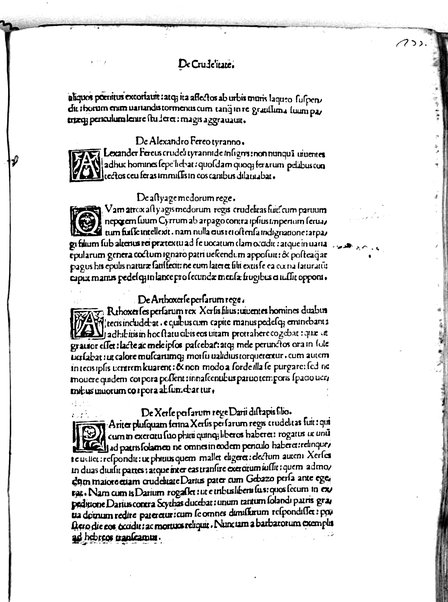 De Crudelitate.
aliquos penitus extorsauit: atq; ita affectos ab urbis muris laqueo suspen-
dit: horum enim uariandis tormentis cum tanq̃ in re grauissima suum pa-
triæq; periculum lenire studeret: magis aggrauauit.
De Alexandro Fereo tyranno.
ALexander Fereus crudeli tyrannide insignis: non nunquã uiuentes
adhuc homines sepeliebat: quosdam quoq; ferarum pellibus con-
tectos ceu feras immissis in eos canibus dilaniabat.
De astyage medorum rege.
QVam atrox astyagis medorum regis crudelitas fuit: cum paruum
nepotem suum Cyrum ab arpago contra ipsius imperium serua-
tum fuisse intellexit. nam nulla eius rei ostensa indignatione: arpa-
gi filium sub alterius rei prætextu ad se uocatum clam occidit: atque in uaria
epularum genera coctum ignaro patri uescendum apposuit: & postea q̃ ar
pagus his epulis naturæ satisfecit: ne eum lateret filii exitse ea cœna saturatũ:
caput manus pedesq; in lance pro secundæ mensæ frugibus ei iussit opponi.
De Arthoxerse persarum rege.
ARthoxerses persarum rex Xersis filius: uiuentes homines duabus
inteos includebat. e quibus cum capite manus pedesq; eminebant:
adhibitis in hoc statu cibis eos uitam protrahere cogebat: que
grauior esset: lacte ac mele ipsos pascebat: atq; mele perunctos ora in sole
uersabat: ut calore muscarumq; morsu ualidius torquerentur. cum autem
in teos ipsis uentrem soluerent: & non modo a sorde illa se purgare: sed ne
mouere quidem corpora possent: innascentibus paruo temporis spacio uer-
mibus uiuorum corpora absumebantur.
De Xerse persarum rege Darii distapis filio.
PAriter plusquam ferina Xersis persarum regis crudelitas fuit: qui
cum in exercitu suo phitii quinq; liberos haberet: rogatus ut unũ
ad patris solamen ne omnes in eodem periculo haberet: relinque-
re uellet: respondit: ut phitius quem mallet eligeret: electum autem Xerses
in duas diuisit partes: atque inter eas transire exercitum iussit: quem admo-
dum maiore etiam crudelitate Darius pater cum Gebazo persa ante ege-
rat. Nam cum is Darium rogasset: ut e tribus liberis suis: quos secum in ex
peditione Darius contra Scythas ducebat: unum tantum solandi patris gra-
tia domum redire pateretur: cum se omnes dimissurum respondisset: po-
stero die eos occidit: ac mortuos reliquit. Nunc iam a barbarorum exemplis
ad hebreos transeamus.